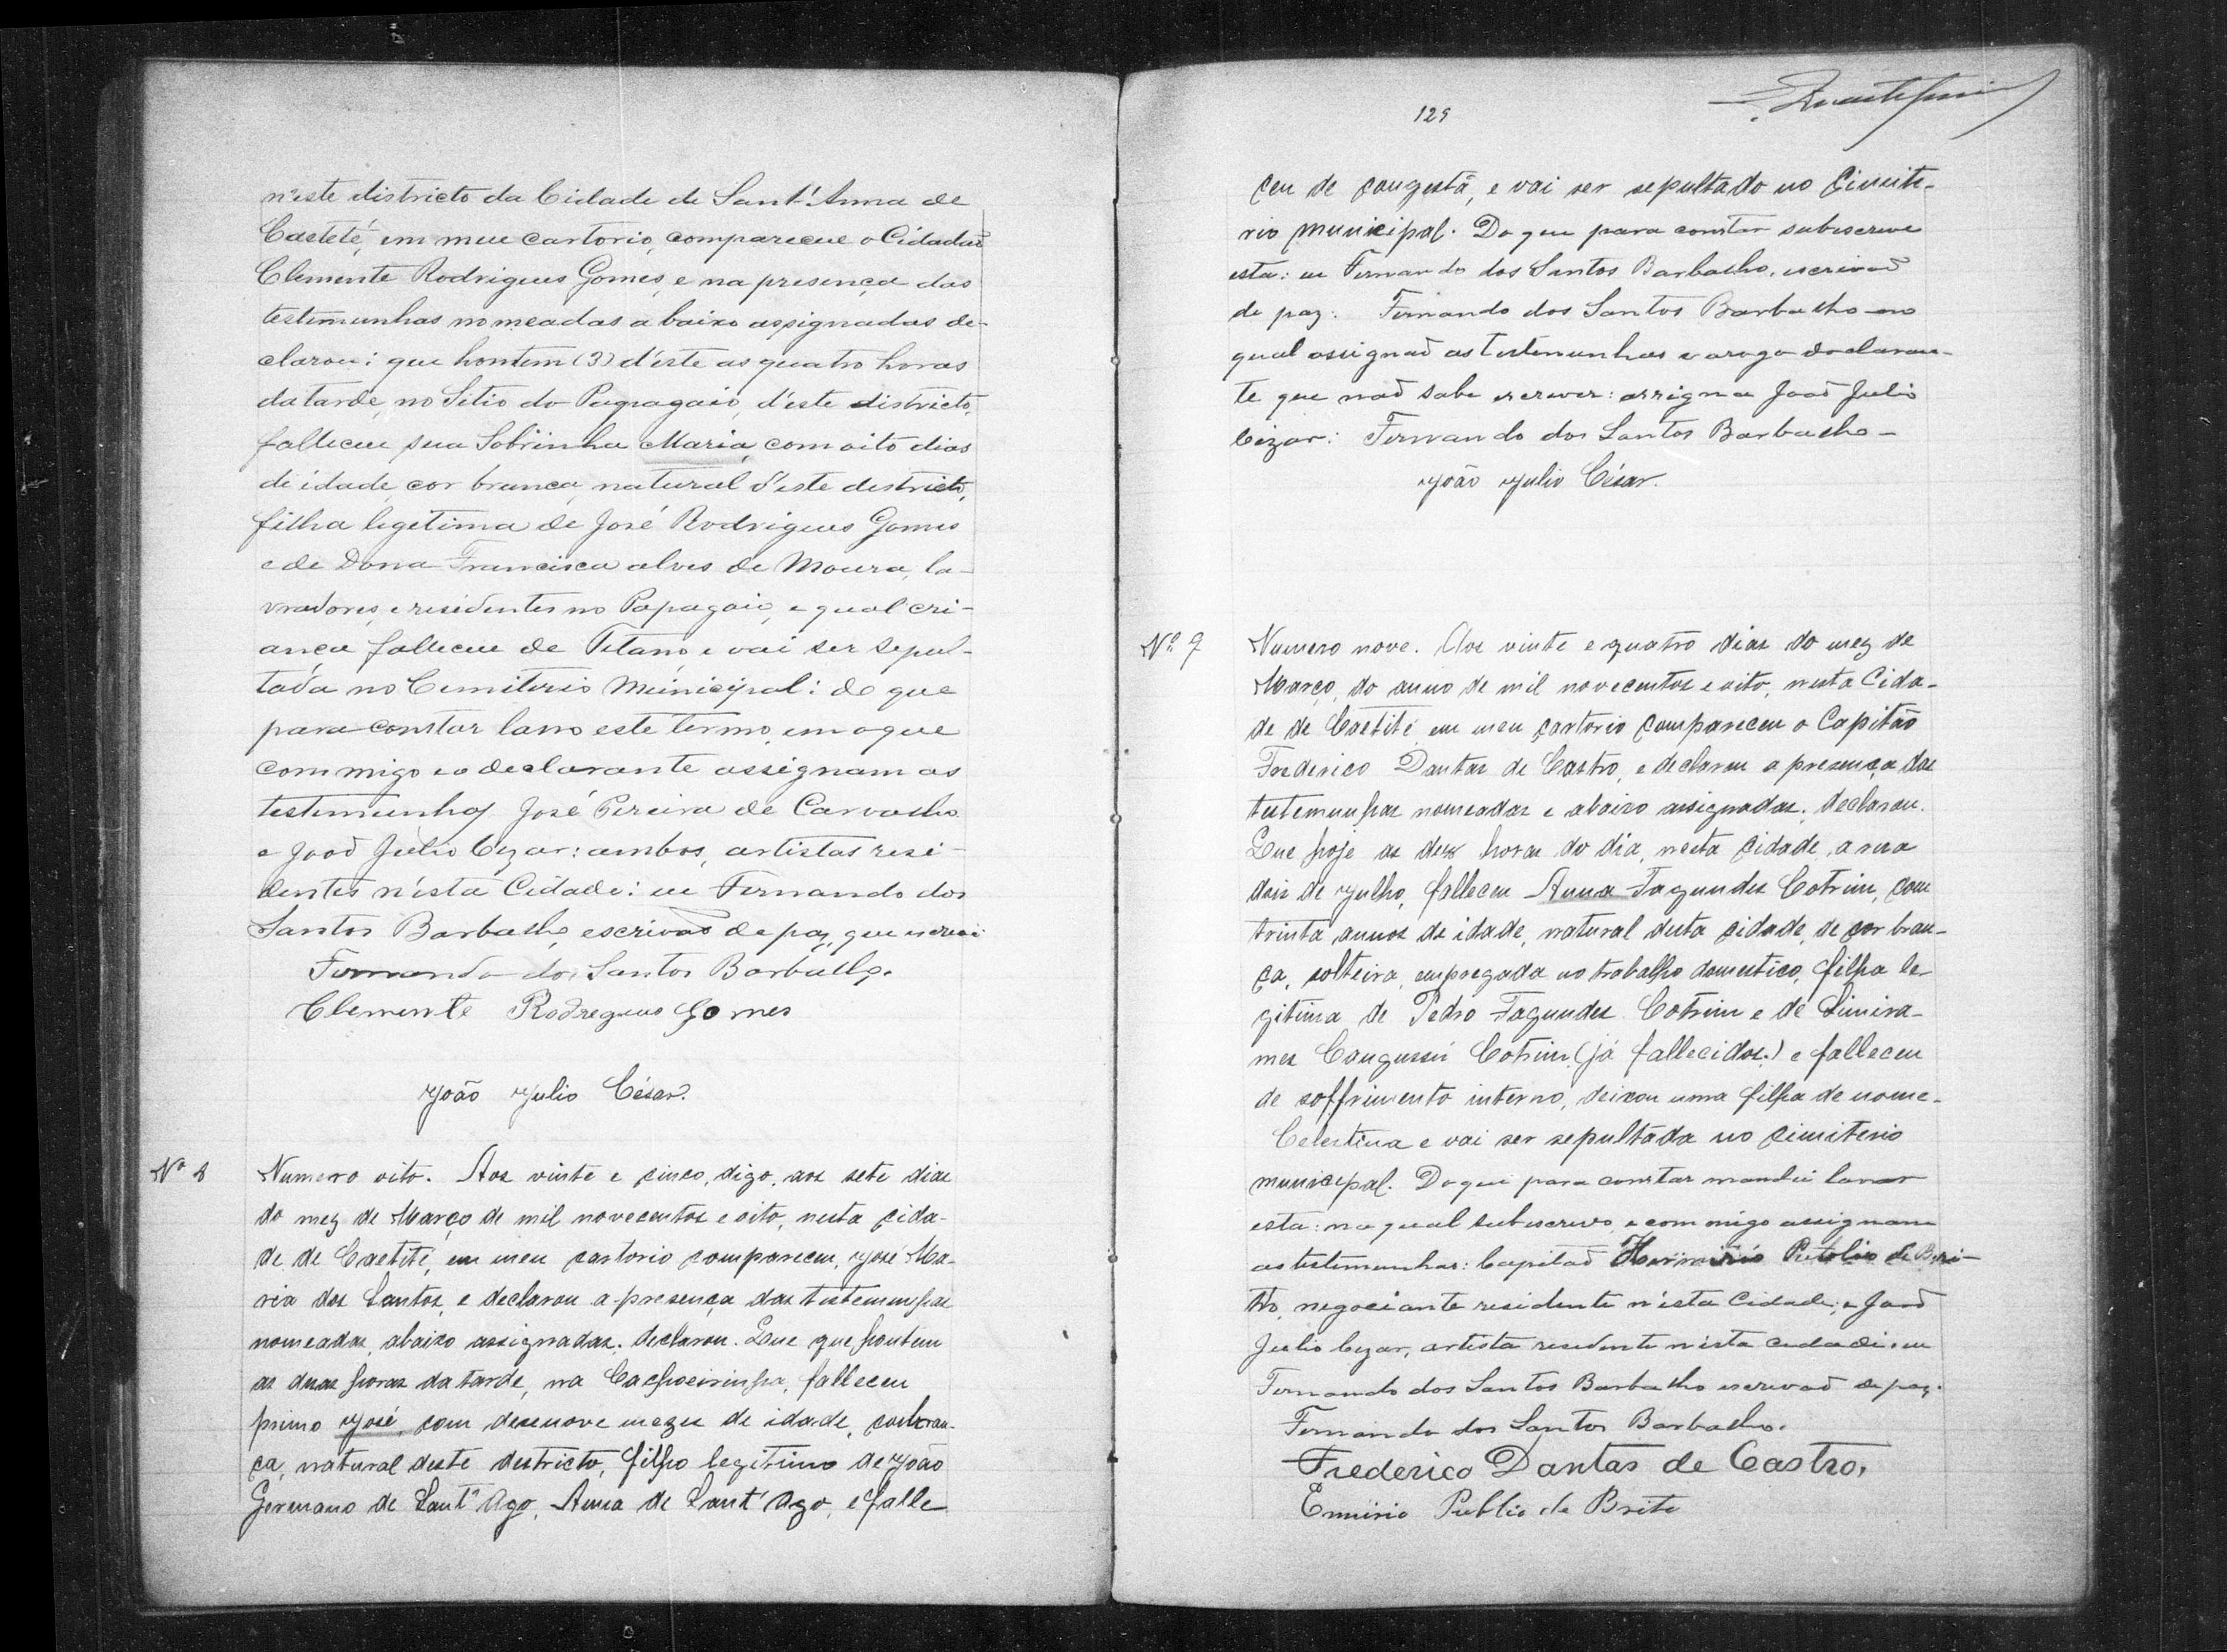 n'este districto da Cidade de Sant'Anna de
Caeteté, em meu cartorio, compareceu o Cidadaõ
Clemente Rodrigues Gomes, e na presença das
testemunhas nomeadas abaixo assignadas de-
clarou: que hontem (3) d'este as quatro horas
da tarde, no Sitio do Papagaio, d'este districto,
falleceu sua Sobrinha Maria, com oito dias
de idade, cor branca, natural d'este districto,
filha legitima de José Rodrigues Gomes
e de Dona Francisca Alves de Moura, la-
vradores, e residentes no Papagaio, a qual cri-
ança falleceu de Tetano e vai ser sepul-
tada no Cemiterio Municipal: do que
para constar lavro este termo, em o que
commigo e o declarante assignam as
testemunhas José Pereira de Carvalho
e Joaõ Julio Cezar: ambos, artistas resi-
dentes n'esta Cidade: eu Fernando dos
Santos Barbalho, escrivaõ de paz, que escrevi
Fernando dos Santos Barbalho.
Clemente Rodregues Gomes
João Julio César.
Nº 8
Numero oito. Aos vinte e cinco, digo, aos sete dias
do mez de Março de mil novecentos e oito, nesta cida-
de de Caetité, em meu cartorio compareceu, José Ma-
ria dos Santos, e declarou a presença das testemunhas
nomeadas, abaixo assignadas, declarou. Que que hontem
as duas horas da tarde, na Cachoeirinha, falleceu
primo José, com desenove mezes de idade, cor bran-
ca, natural deste districto, filho legitimo de João
Germano de Sant'Ago, Anna de Sant'Ago, e falle
129
ceu de congestã, e vai ser sepultado no Cimite-
rio municipal. Do que para constar subescreve
esta: eu Fernando dos Santos Barbalho, escrivaõ
de paz: Fernando dos Santos Barbalho no
qual assignaõ as testemunhas e a rogo declaran-
te que naõ sabe escrever: assigna Joaõ Julio
Cezar: Fernando dos Santos Barbalho-
João Julio César.
Nº 9
Numero nove. Aos vinte e quatro dias do mez de
Março, do anno de mil novecentos e oito, nesta Cida-
de de Caetité em meu cartorio compareceu o Capitão
Frederico Dantas de Castro, e declarou a presença das
testemunhas nomeadas e abaixo assignadas, declarou.
Que hoje as dez horas do dia, nesta cidade, a rua
dois de Julho, falleceu Anna Fagundes Cotrim, com
trinta annos de idade, natural desta cidade, de cor bran-
ca, solteira, empregada no trabalho domestico, filha le-
gitima de Pedro Fagundes Cotrim e de Simira-
mes Cangussú Cotrim, (já fallecidos.) e falleceu
de soffrimento interno, deixou uma filha de nome-
Celestina e vai ser sepultada no cimiterio
municipal. Do que para constar mandei lavrar
esta: na qual subescrevo, e commigo assignam
as testemunhas: Capitaõ de Bri-
to, negociante residente n'esta Cidade, e Joaõ
Julio Cezar, artista residente n'esta cidade: eu
Fernando dos Santos Barbalho escrivaõ de paz.
Fernando dos Santos Barbalho.
Frederico Dantas de Castro,
Ermirio Publio de Brito